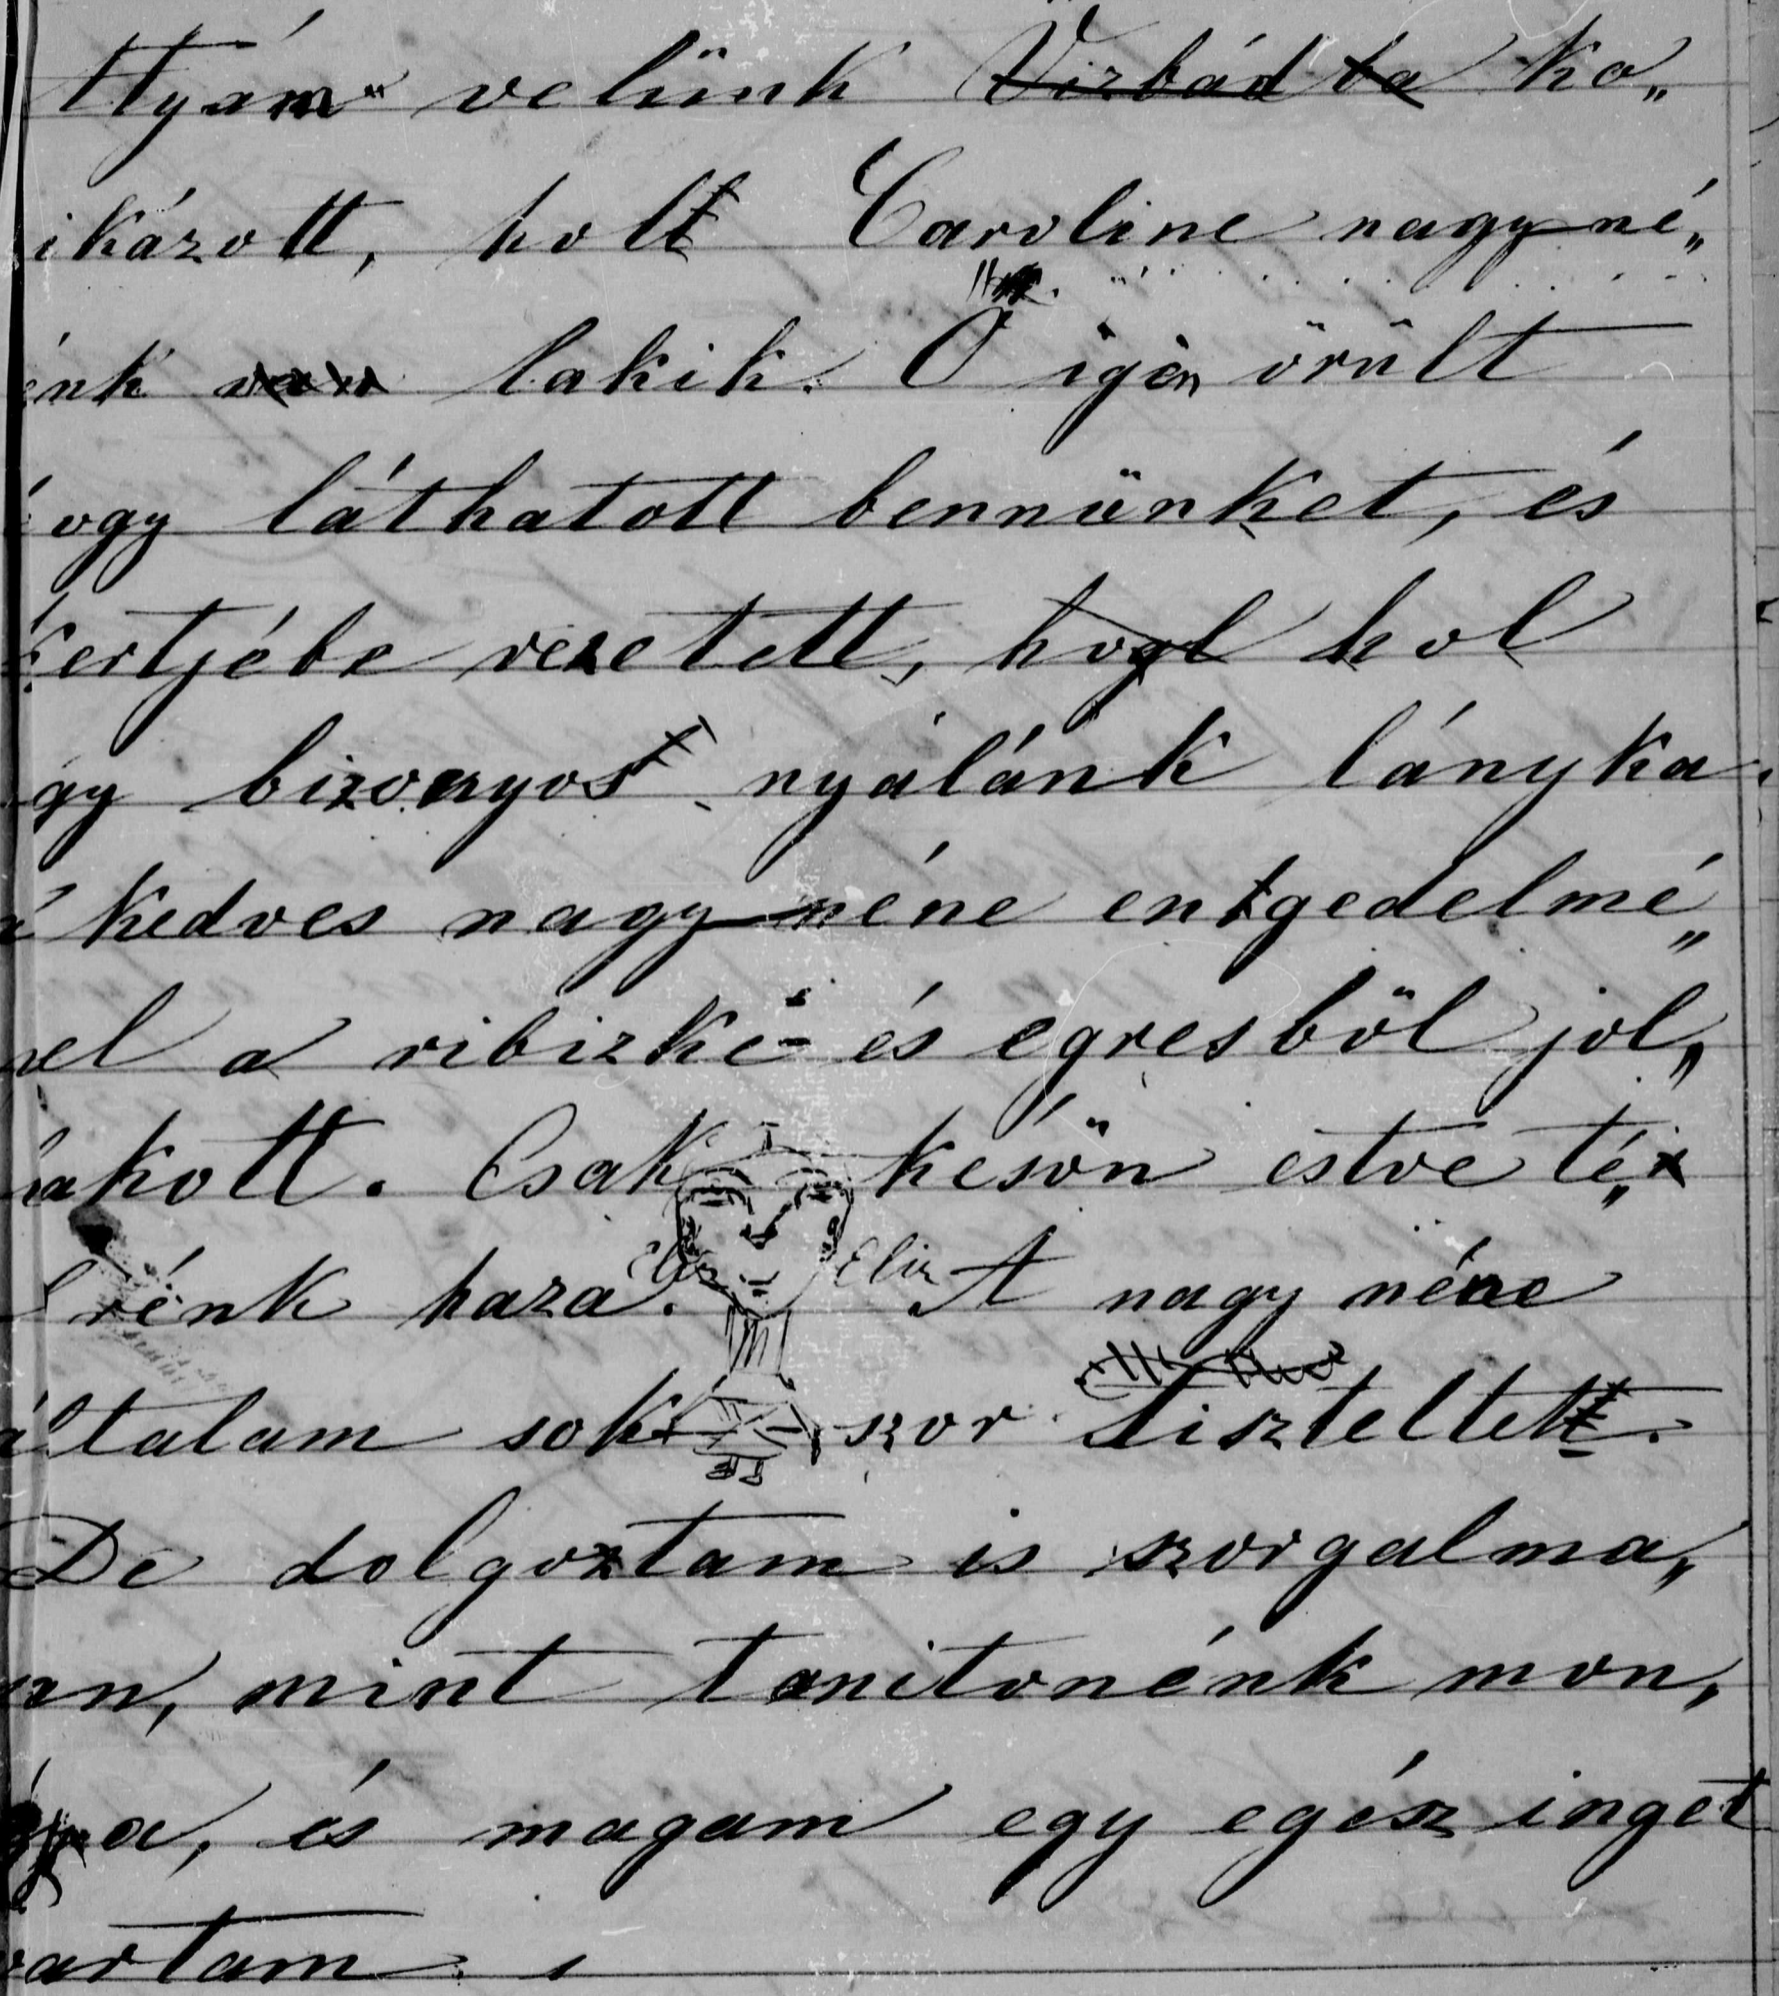 Atyám velünk Vizbád ba ko„
ikázott, holt Caroline nagyné„
énk van lakik. Ő igen örült
hogy láthatott bennünket, és
kertjébe vezetett, hogl hol
gy bizonyost nyalánk lányka
a kedves nagynéne entgedelmé„
vel a ribizke- és egresből jol„
lakott. Csak későn estve té„r
rénk haza. Eliz Eliz A nagy néne
általam sok szor tiszteltett.
De dolgoztam is szorgalma„
an, mint tanitonénk mon„
a, és magam egy egész inget
vartam.